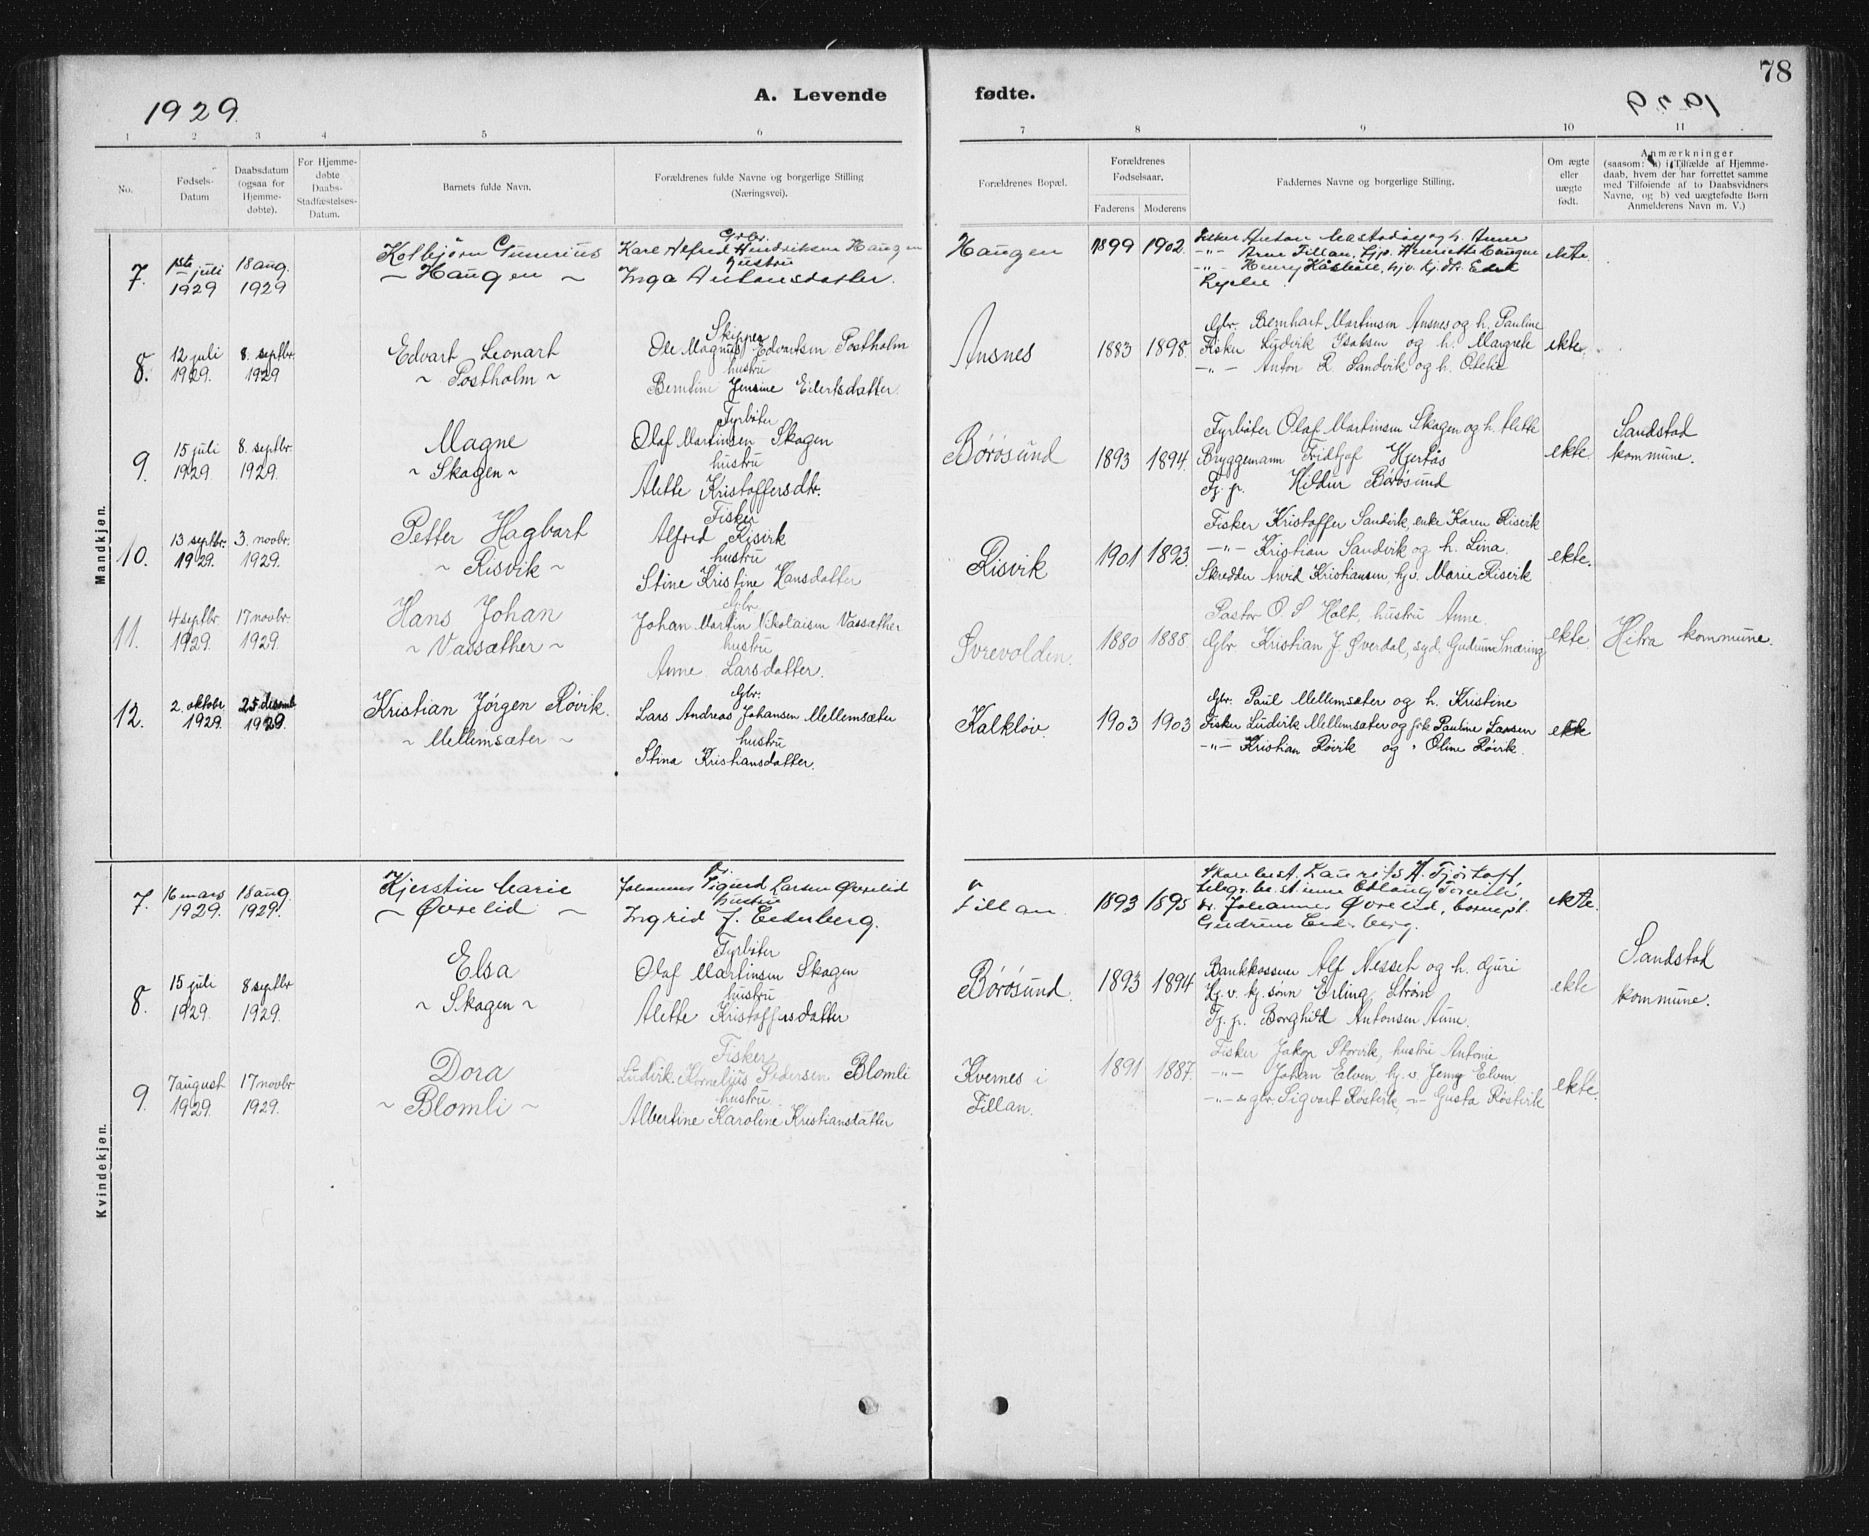 78
1929
A. Levende fødte.
1929
1 2 3 4 5 6 7 8 9 10 11
No.
Fødsels-
Datum
Daabsdatum
(ogsaa for
Hjemme-
døbte).
For Hjemme-
døbte
Daabs-
Stadfæstelses-
Datum.
Barnets fulde Navn.
Forældrenes fulde Navne og borgerlige Stilling
(Næringsvei).
Forældrenes Bopæl.
Forældrenes
Fødselsaar.
Faderens Moderens
Faddernes Navne og borgerlige Stilling.
Om ægte
eller
uægte
født.
Anmærkninger
(saasom: a) i Tilfælde af Hjemme-
daab, hvem der har forrettet samme
med Tilføiende af to Daabsvidners
Navne, og b) ved uægtefødte Børn
Anmelderens Navn m. V.)
Mandkjøn.
7.
1ste juli
1929
18 aug.
1929
Kolbjørn Gunerius
~ Haugen ~
Gbr.
Karl Alfred Hendriksen Haugen
hustru
Inga Antonsdatter.
Haugen
1899 1902.
Fisker Anton og h. Anne
-"- Arne Fillan, hjv. Henriette Haugen
-"- Henry hjv. kj. dtr.
ekte.
8.
12 juli
1929.
8. septbr.
1929
Edvart Leonart
~ Postholm ~
Skipper
Ole Magnus Edvartsen Postholm
hustru
Berntine Jensine Eilertsdatter.
Ansnes
1883 1898.
Gbr. Bernhart Martinsen Ansnes og h. Pauline
Fisker Ludvik Isaksen og h. Margrete
-"- Anton R. Sandvik og h. Otelie
ekte.
9.
15 juli
1929.
8. septbr.
1929.
Magne
~ Skagen ~
Fyrbøter
Olaf Martinsen Skagen
hustru
Alette Kristoffersdtr.
Børøsund
1893 1894.
Fyrbøter Olaf Martinsen Skagen og h. Alette
Bryggemann Fridtjof Hjertås
Pj. p. Hildur Børøsund
ekte.
Sandstad
kommune.
10.
13 septbr.
1929.
3. novbr.
1929.
Petter Hagbart
~ Risvik ~
Fisker
Alfred Risvik
hustru
Stine Kristine Hansdatter
Risvik
1901 1893.
Fisker Kristoffer Sandvik, enke Karen Risvik
-"- Kristian Sandvik og h. Lina.
Skredder Arvid Kristiansen, hjv. Marie Risvik
ekte.
11.
4 septbr.
1929.
17 novbr.
1929.
Hans Johan
~ Vassæther ~
Gbr
Johan Martin Nikolaisen Vassæther
hustru
Anne Larsdatter.
Svevolden.
1880 1888.
Pastor O S Holt, hustru Anne.
Gbr Kristian J. Øverdal, syd. Gudrun Snæring
ekte.
Hitra kommune.
12.
2. oktobr
1929.
25 desemb
1929
Kristian Jørgen Røvik.
~ Mellemsæter ~
Gbr.
Lars Andreas Johansen Mellemsæter
hustru
Stina Kristiansdatter.
Kalkløv.
1903 1903
Gbr. Paul Mellemsæter og h. Kristine
Fisker Ludvik Mellemsæter og frk Pauline Larsen
-"- Kristian Røvik og " Oline Røvik.
ekte
Kvindekjøn.
7.
16 mars
1929.
18 aug.
1929.
Kjerstin Marie
~ Øvrelid ~
Dr.
Johannes Sigurd Larsen Øvrelid
hustru
Ingrid J. Cederberg.
Fillan.
1893 1895
Laurits A. Fjørtoft,
telegr. best.inne Otlaug
dr. Johannes Øvrelid,
Gudrun
ekte.
8.
15 juli
1929.
8 septbr
1929.
Elsa
~ Skagen ~
Fyrbøter
Olaf Martinsen Skagen
hustru
Alette Kristoffersdatter
Børøsund.
1893 1894
Bankkasserer Alf Nesset og h. Guri
Hj. v. kj. sønn Erling Strøm
Pj. p. Borghild Antonsen Aune.
ekte
Sandstad
kommune.
9.
7 august
1929.
17 novbr
1929.
Dora
~ Blomli ~
Fisker
Ludvik Kornelius Pedersen Blomli
hustru
Albertine Karoline Kristiansdatter
Kvernes i
Fillan.
1891 1887.
Fisker Jakop Storvik, hustru Antonie
-"- Johan Elven hj. v. Jenny Elven
-"- & gbr. Sigvart Røstvik, -"- Gusta Røstvik
ekte.